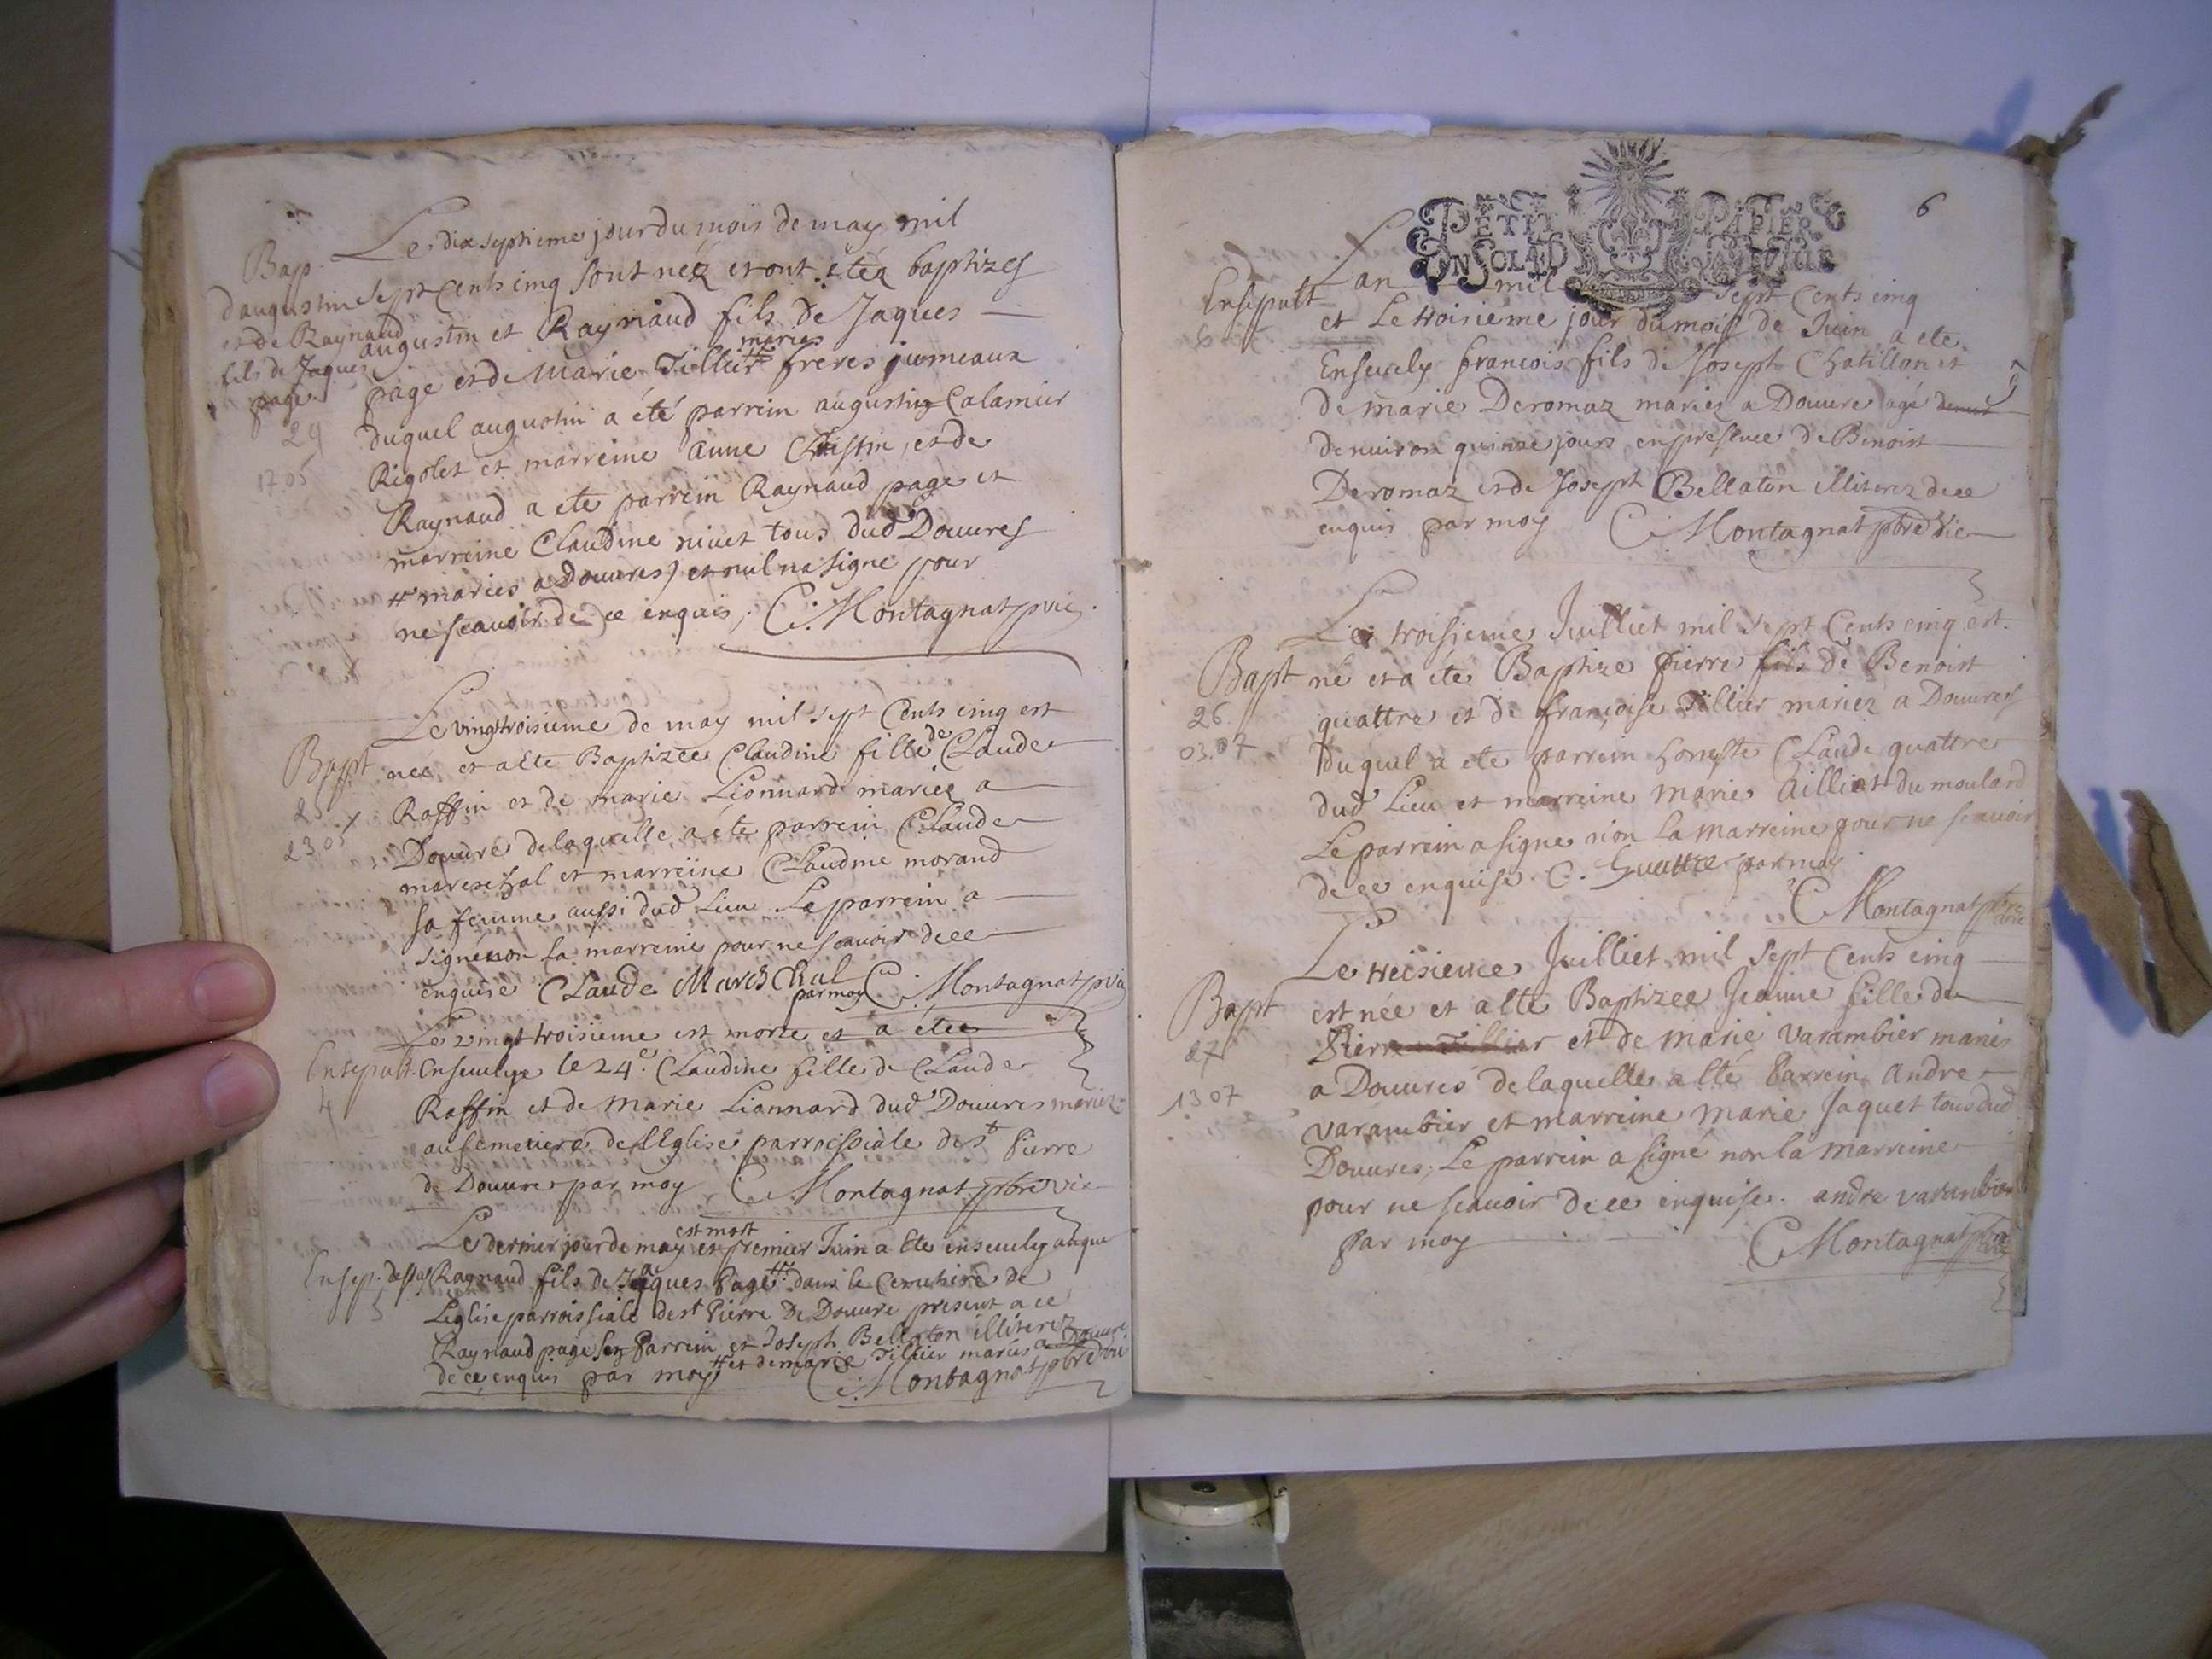 Le dix septieme jour du mois de may mil
Bap
d'augustin sept cents cinq sont néz et ont étéz baptizes
et de Raynaud
fils de Jaques
page
augustin et Raynaud fils de Jaques
maries
page et de Marie Tillier # freres jumeaux
duquel augustin a été parrein augustin Calamier
24
1705
Rigolet et marreine anne Christin, et de
Raynaud a ete parrein Raynaud page et
marreine Claudine nivet tous dud Douures
# mariés a Douures) et nul na signe pour
ne scauoir de ce enquis, C. Montagnat p vic
Le vingt troisieme de may mil sept Cents cinq est
Bapt née, et a éte Baptizée Claudine fille de Claude
25
2305
Raffin et de marie Lionnard mariez a
Douure de laquelle a éte parrein Claude
mareschal et marreine Claudine morand
sa femme aussi dud Lieu. Le parrein a
signé non la marreine pour ne scauoir de ce
enquise Claude Mareschal par moy C. Montagnat p vic
Le vingt troisieme est morte et a étée
Ensepult. Enseuelye le 24e. Claudine fille de Claude
4
Raffin et de Marie Lionnard dud Douures mariez
au semetiere de l'Eglise parroissiale de St Pierre
de Douures par moy C. Montagnat pbre vic
est mort
Le dernier jour de may et premier Juin a éte enseuely auque
Ensep. Raynaud fils de Jaques Page # dans le Cemetiere de
5
L'eglise parroissiale de st Pierre De Douure present a ce
Raynaud page son Parrein et Joseph Bellaton illiterez
de ce enquis par moy # et de marie Tillier mariés a Douure
C. Montagnat pbre vic
6
PETIT PAPIER
UN SOL
Lan mil sept cents cinq
Ensepult
6
et Le troisieme jour du mois de Juin a ete
Enseuely francois fils de Joseph Chatillon et
de marie Deromaz mariez a Douure agé
denuiron quinze jours en presence de Benoist
Deromaz et de Joseph Bellaton illiterez de ce
enquis par moy C Montagnat pbre vic
Le troisieme Juilliet mil sept Cents cinq est
Bapt né et a éte Baptize pierre fils de Benoist
26
03.07
quattre et de françoise Tillier mariez a Douures
duquel a ete parrein honeste Claude quattre
dud Lieu et marreine marie Ailliot du moulard
Le parrein a signe non la marreine pour ne scauoir
de ce enquise. C. Guattre par moy
C Montagnat pbre vic
Le treisieme Juilliet mil sept Cents cinq
Bapt est née et a éte Baptizee Jeanne fille de
27
1307
Pierre Tillier et de marie varambier mariés
a Douures de laquelle a été Parrein Andre
varambier et marreine marie Jaquet tous dud
Douures, Le parrein a signé non la marreine
pour ne scauoir de ce enquise. andre varanbier
par moy C Montagnat pbre vic